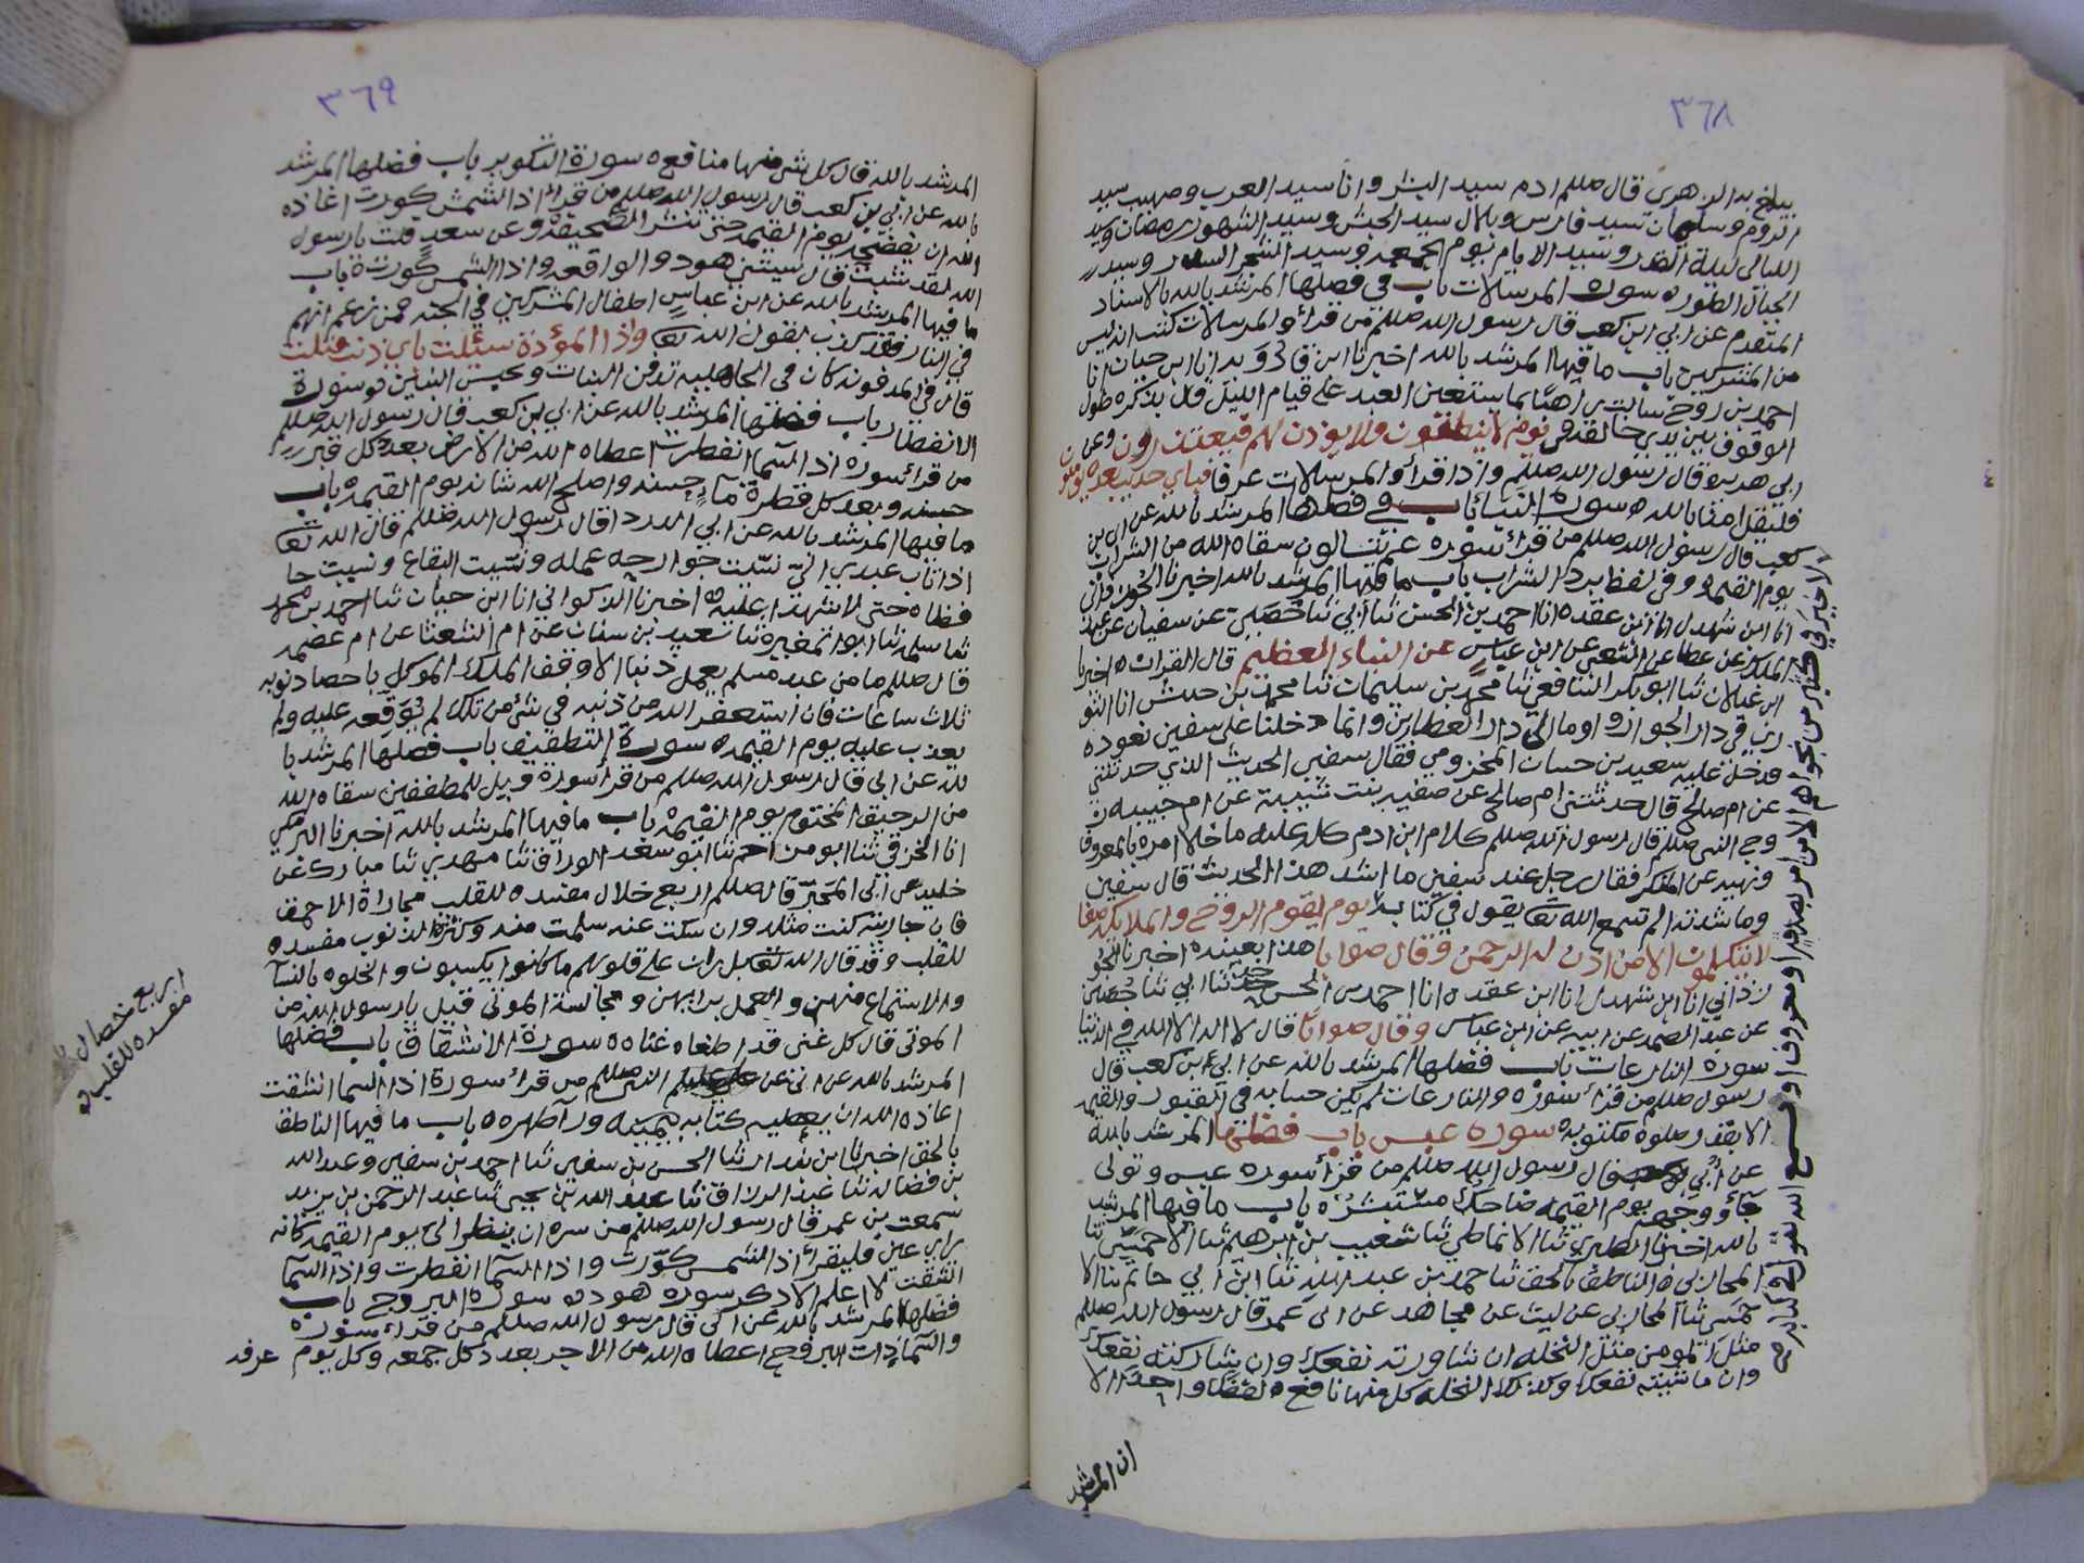 ٣٦٨
قال صللم ادم سيد البشر وانا سيد العرب وصهيب سيد
الروم وسلمان سيد فارس وبلال سيد الحبش وسيد الشهور رمضان وسيد
الليالي ليلة القدر وسيد الايام يوم الجمعه وسيد الشجر السدر وسيد
الجبال الطور ه سورة المرسلات باب في فضلها المرشد بالله بالاسناد
المتقدم عن ابي ابن كعب قال رسول الله صللم من قرأ والمرسلات كتب انه ليس
من المشركين باب ما فيها المرشد بالله اخبرنا ابن قاذويه انا ابن حيان انا
احمد بن روح سالت راهبًا بما يستعين العبد على قيام الليل قال بذكره طول
الوقوف بين يدي خالقه في يوم لا ينطقون ولا يوذن لهم فيعتذرون وعن
ابي هريره قال رسول الله صللم واذا قرأ والمرسلات عرفا فباي حديث بعده يومنون
فليقل امنا بالله ه سورة النبا باب في فضلها المرشد بالله عن ابي بن
كعب قال رسول الله صللم من قرأ سورة عم يتسالون سقاه الله من الشراب
يوم القيمه وفي لفظ برد الشراب باب ما فيها المرشد بالله اخبرنا الجوزداني
انا ابن شهدل انا ابن عقده انا احمد بن الحسن ثنا ابي ثنا حصين عن سفيان عن عبد
الملك عن عطا عن الشعبي عن ابن عباس عن النباء العظيم قال القران ه اخبرنا
ابن غيلان ثنا ابو بكر الشافعي ثنا محمد بن سليمان ثنا محمد بن حبش انا الثو
ري في دار الجوار واوما الى دار العطارين وانما دخلنا على سفين نعوده
فدخل عليه سعيد بن حسان المخزومي فقال سفين الحديث الذي حدثتني
عن ام صالح قال حدثتني ام صالح عن صفيه بنت شيبة عن ام حبيبه
زوج النبي صللم قال رسول الله صللم كلام ابن ادم كله عليه ما خلا امره بالمعروف
ونهيه عن المنكر فقال رجل عند سفين ما اشد هذا الحديث قال سفين
وما شدته الم تسمع الله تعا يقول في كتابه يوم يقوم الروح والملائكة صفا
لا يتكلمون الا من اذن له الرحمن وقال صوابا هذا بعينه ه اخبرنا الجو
زذاني انا ابن شهدل انا ابن عقده انا احمد بن الحسن حدثنا ابي ثنا حصين
عن عبد الصمد عن ابيه عن ابن عباس وقال صوابًا قال لا اله الا الله في الدنيا
سورة النازعات باب فضلها المرشد بالله عن ابي ابن كعب قال
رسول صللم من قرأ سورة والنازعات لم يكن حسابه في القبور والقيمه
الا بقدر صلوه مكتوبه ه سورة عبس باب فضلها المرشد بالله
عن أبي قال رسول الله صللم من قرأ سورة عبس وتولى
جآؤ ووجهه يوم القيمه ضاحك مستبشر ه باب ما فيها المرشد
بالله اخبرنا الطبري ثنا الانماطي ثنا شعيب بن ابرهيم ثنا الاحمسي ثنا
المحاربي ه الناطق بالحق ثنا حمد بن عبد الله ثنا ابن ابي حاتم ثنا الا
حمسي ثنا المحاربي عن ليث عن مجاهد عن ابن عمر قال رسول الله صللم
مثل المومن مثل النخله ان شاورته نفعك وان شاركته نفعك
وان ماشيته نفعك وكذلك النخله كل منها نافع ه لفظًا واحدًا الا
ان المرشد
لا خير في كثير من نجواهم الا من امر بصدقة او معروف
٣٦٩
المرشد بالله قال كل شي منها منافع ه سورة التكوير باب فضلها المرشد
بالله عن ابي بن كعب قال رسول الله صللم من قرأ اذا الشمس كورت اعاذه
الله ان يفضحه يوم القيمه حتى تنشر الصحيفة وعن سعد قلت يارسول
الله لقد شبت قال شيبتني هود والواقعه واذا الشمس كورت ه باب
ما فيها المرشد بالله عن ابن عباس اطفال المشركين في الجنه فمن زعم انهم
في النار فقد كذب بقول الله تعا واذا الموؤدة سئلت باي ذنب قتلت
قال في المدفونه كان في الجاهليه تدفن البنات وتحبس البنين ه سورة
الانفطار باب فضلها المرشد بالله عن ابي بن كعب قال رسول الله صللم
من قرأ سورة اذا السما انفطرت اعطاه الله من الارض بعدد كل قبر
حسنه وبعدد كل قطرة مآء حسنه واصلح الله شانه يوم القيمه باب
ما فيها المرشد بالله عن ابي الدردا قال رسول الله صللم قال الله تعا
اذا تاب عبدي الي نسيت جوارحه عمله ونسيت البقاع ونسيت حا
فظاه حتى لا يشهدا عليه ه اخبرنا الذكواني انا ابن حيان ثنا احمد بن محمد
ثنا سلمه ثنا ابو المغيرة ثنا سعيد بن سنان عن ام الشعثا عن ام عصمه
قال صللم ما من عبد مسلم يعمل ذنبا الا وقف الملك الموكل باحصا ذنوبه
ثلاث ساعات فان استغفر الله من ذنبه في شئ من تلك لم يوقعه عليه ولم
يعذب عليه يوم القيمه ه سورة التطفيف باب فضلها المرشد با
لله عن ابي قال رسول الله صللم من قرأ سورة ويل للمطففين سقاه الله
من الرحيق المختوم يوم القيمه ه باب ما فيها المرشد بالله اخبرنا البرمكي
انا الخرقي ثنا ابو مزاحم ثنا ابو سعد الوراق ثنا مهدي ثنا مبارك عن
خليد عن ابي المحبر قال صللم اربع خلال مفسده للقلب مجاراة الاحمق
فان جاريته كنت مثله وان سكت عنه سلمت منه وكثرة الذنوب مفسده
للقلب وقد قال الله تعا بل ران على قلوبهم ما كانوا يكسبون والخلوه بالنسآ
والاستماع منهن والعمل برايهن ومجالسة الموتى قيل يارسول الله من
الموتى قال كل غني قد اطغاه غناه ه سورة الانشقاق باب فضلها
المرشد بالله عن ابي عن النبي صللم من قرأ سورة اذا السما انشقت
اعاذه الله ان يعطيه كتابه بيمينه ورآ ظهره ه باب ما فيها الناطق
بالحق اخبرنا ابن بندار ثنا الحسن بن سفين ثنا احمد بن سفين وعبد الله
بن فضاله ثنا عبد الرزاق ثنا عبد الله بن بحير ثنا عبد الرحمن بن يزيد
سمعت بن عمر قال رسول الله صللم من سره ان ينظر الى يوم القيمه كانه
راي عين فليقرأ اذا الشمس كوّرت واذا السمآ انفطرت واذا السمآ
انشقت لا اعلم الا ذكر سورة هود ه سورة البروج باب
فضلها المرشد بالله عن ابي قال رسول الله صللم من قراء سورة
والسمآ ذات البروج اعطاه الله من الاجر بعدد كل جمعه وكل يوم عرفه
اربع خصال
مفسده للقلب